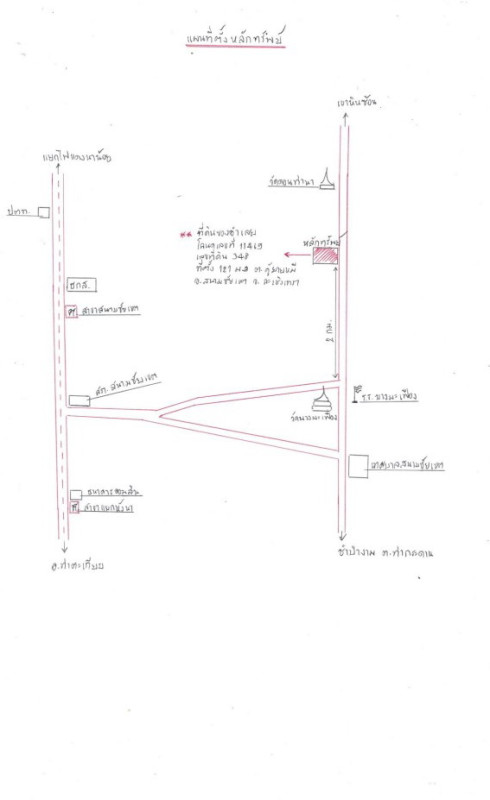 แผนที่ตั้งหลักทรัพย์
เขาหินซ้อน
แยกไฟแดง
วัดดอนท่านา
ปตท.
** ที่ดินของจำเลย
โฉนดเลขที่ 11469
เลขที่ดิน 348
ที่ตั้ง 181 ม.9 ต.คู้ยายหมี
อ.สนามชัยเขต จ.ฉะเชิงเทรา
หลักทรัพย์
ธกส.
สาขาสนามชัยเขต
2 กม.
สภ.สนามชัยเขต
วัดบางมะเฟือง
ร.ร.บางมะเฟือง
เทศบาล.สนามชัยเขต
ธนาคารออมสิน
อ.ท่าตะเกียบ
ชำป่างาม ต.ท่ากระดาน